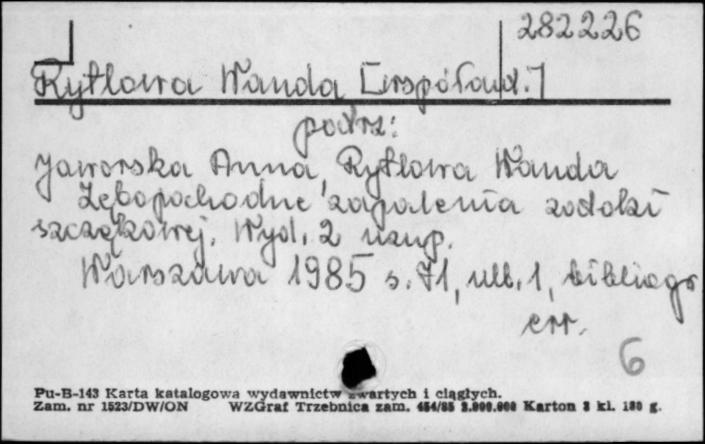 282226
Rytlowa Wanda [współaut.]
patrz:
Jaworska Anna, Rytlowa Wanda
Zębopochodne zapalenia zatoki
szczękowej. Wyd. 2 uzup.
Warszawa 1985 s. 71, nlb. 1, bibliogr
err.
6
Pu-B-143 Karta katalogowa wydawnictw zwartych i ciągłych.
Zam. nr 1523/DW/ON WZGraf Trzebnica zam. 454/85 2.000.000 Karton 3 kl. 180 g.